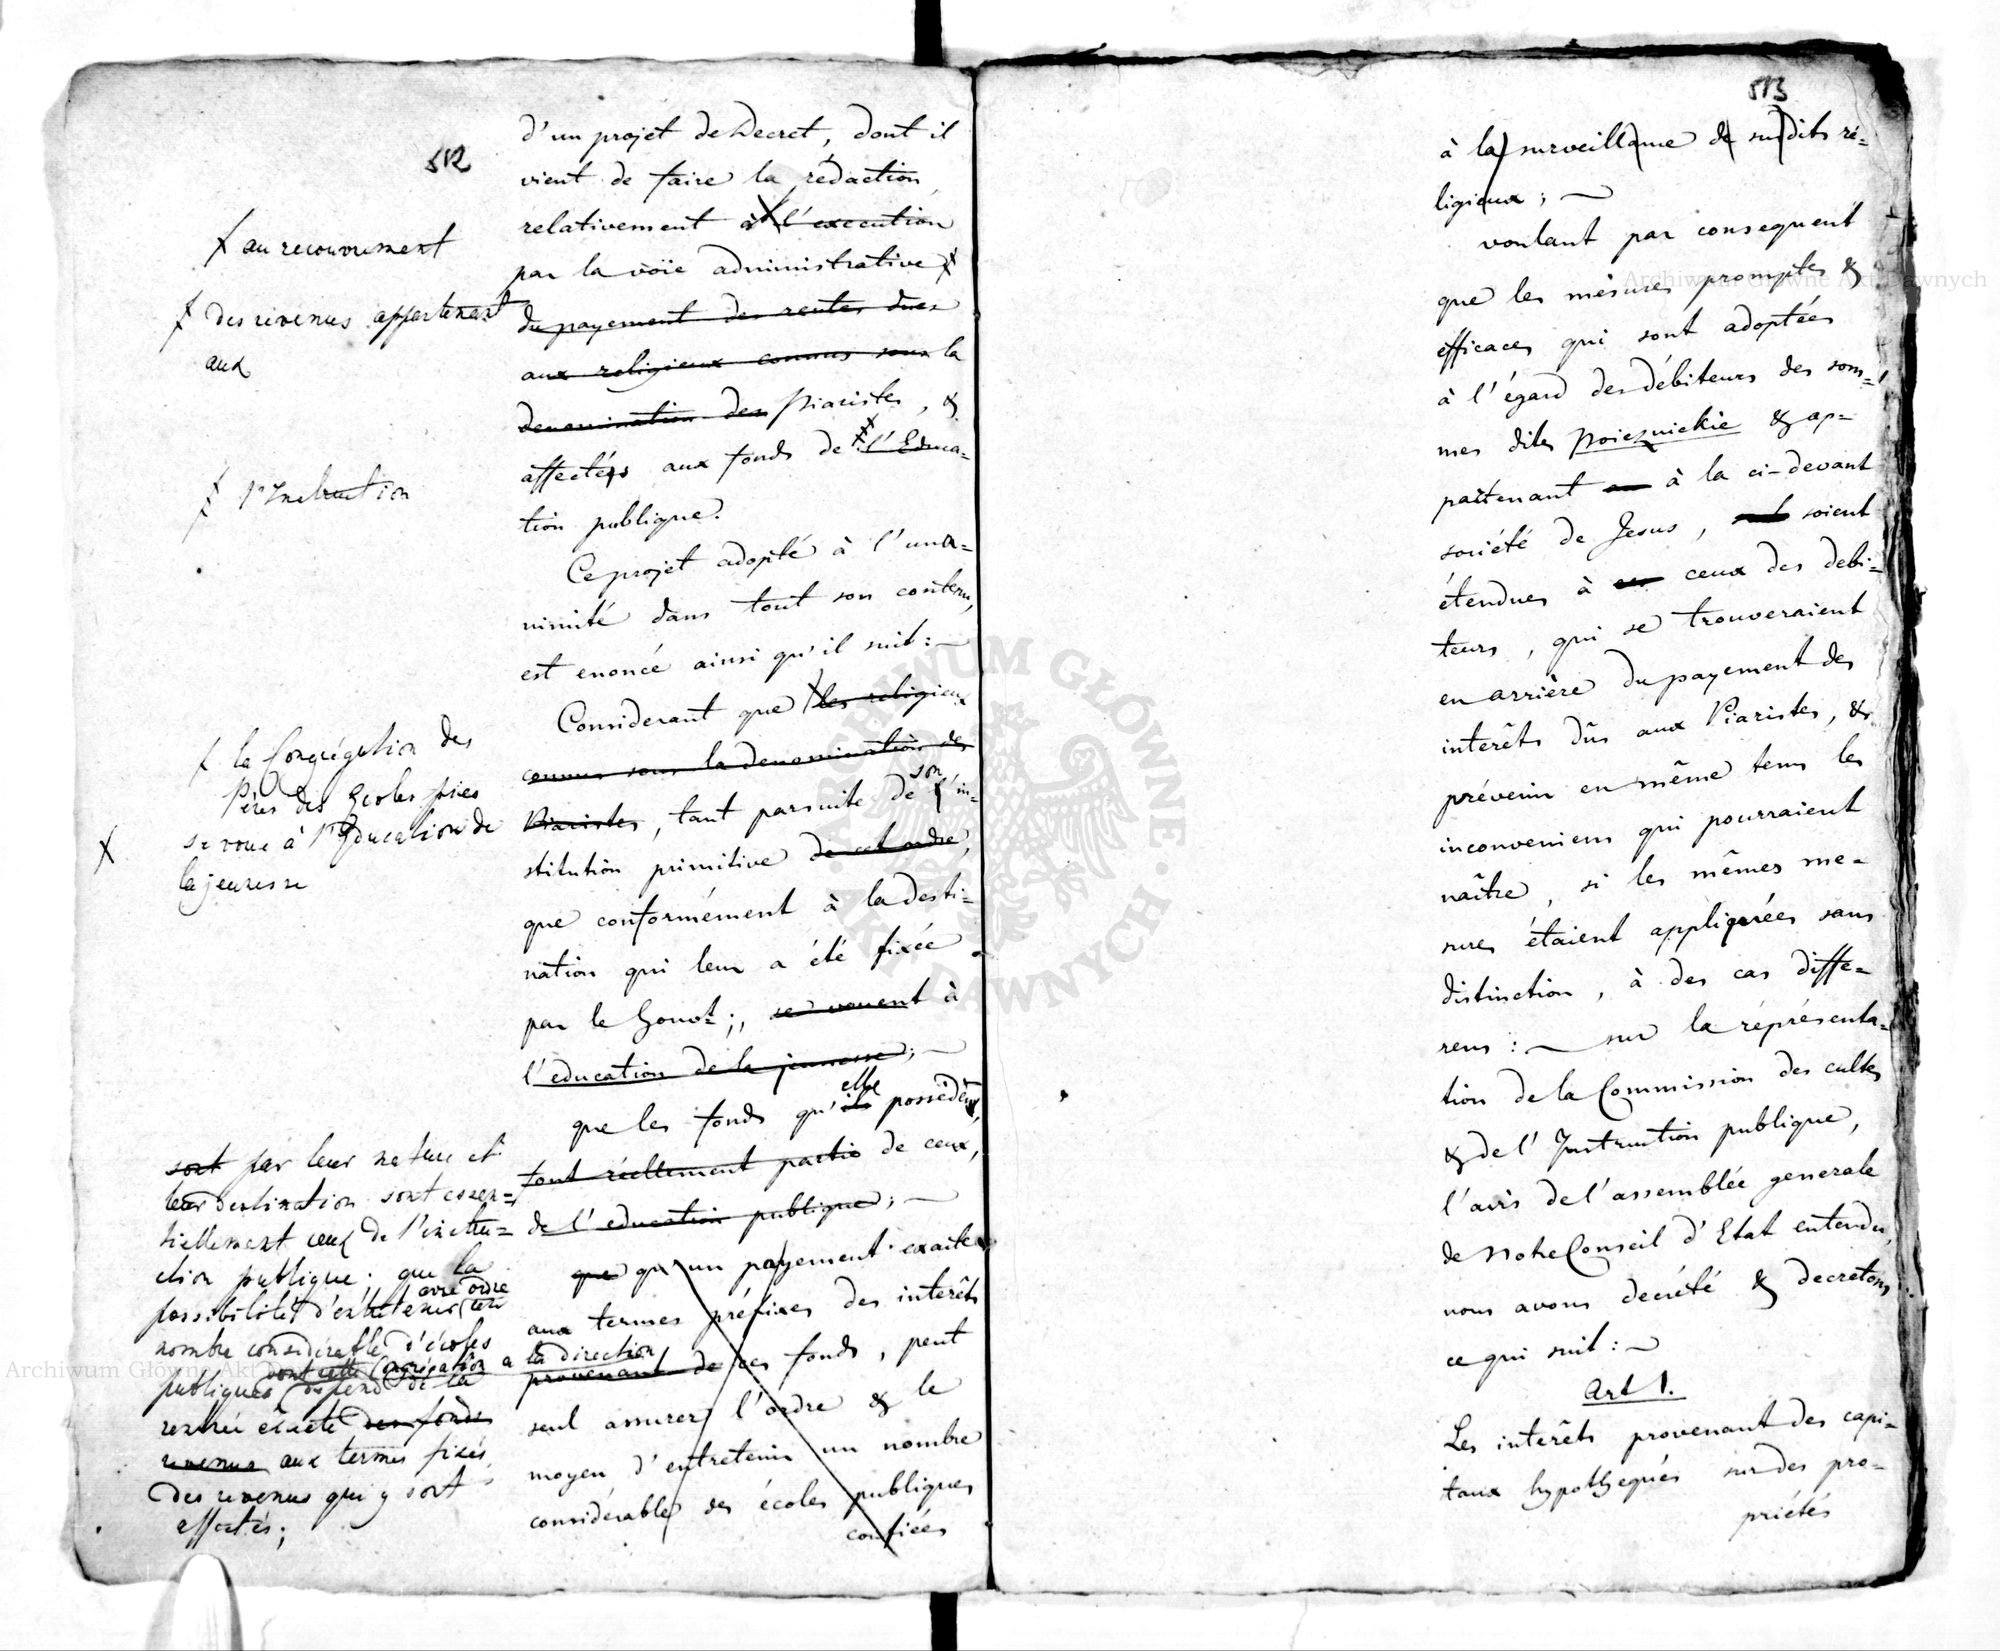 512
d'un projet de Decret, dont il
vient de faire la rédaction
relativement à l'execution
par la voïe administrative
du payement des rentes dues
aux religieux connus sous la
denomination des Piaristes, &
affectés aux fonds de l'Educa=
tion publique.
Ce projet adopté à l'una=
nimité dans tout son contenu,
est enoncé ainsi qu'il suit: ~
Considerant que les religieux
connus sous la denomination des
Piaristes, tant par suite de son in=
stitution primitive de cet ordre,
que conformément à la desti=
nation qui leur a été fixée
par le Gouvt;, se vouent à
l'education de la jeunesse; ~
que les fonds qu'ils elle possèdent,
font réellement partie de ceux,
de l'education publique; ~
que qu'un payement exacte
aux termes préfixes des interêts
la direction
provenant de ces fonds, peut
seul assurer l'ordre & le
moyen d'entretenir un nombre
considerable des écoles publiques
confiées
au recouvrement
des revenus appartenant
aux
l'Instruction
la Congrégation des
Pères des Ecoles pies
se voue à l'Education de
la jeunesse
sont par leur nature et
leur destination sont essen=
tiellement ceux de l'instru=
ction publique. que la
possibilité d'entretenir avec ordre
nombre considérable d'écoles
publiques dont cette Congrégation a
dépend de la
rentrée exacte des fonds
revenus aux termes fixés
des revenus qui y sont
affectés;
513
à la surveillance de susdits ré=
ligieux; ~
voulant par consequent
que les mésures promptes &
efficaces qui sont adoptées
à l'égard des débiteurs des som=
mes dites Poieznickie & ap=
partenant à la ci-devant
société de Jesus, soient
étendues à ceux des debi=
teurs, qui se trouveraient
en arrière du payement des
interêts dûs aux Piaristes, &
prévenir en même tems les
inconveniens qui pourraient
naître, si les mêmes me=
sures étaient appliquées sans
distinction, à des cas diffe=
rens: ~ sur la réprésenta=
tion de la Commission des cultes
& de l'Instruction publique,
l'avis de l'assemblée generale
de Notre Conseil d'Etat entendu,
nous avons decrété & decretons
ce qui suit: ~
Art 1.
Les interêts provenant des capi=
taux hypothequés sur des pro=
priétés